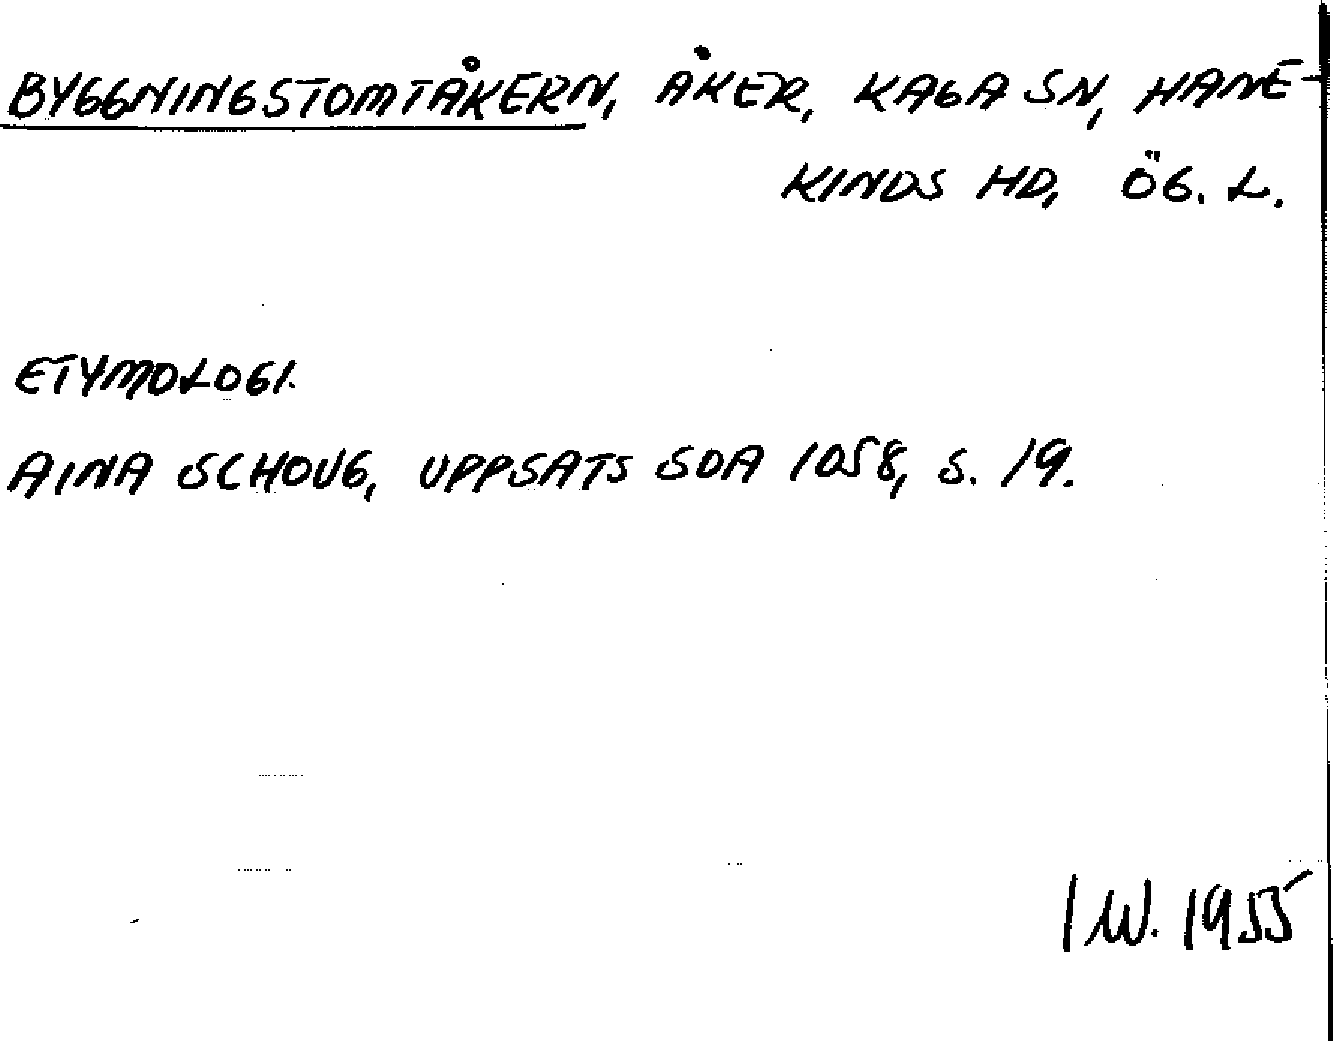 BYGGNINGSTOMTÅKERN, ÅKER, KAGA SN, HANE-
KINDS HD, ÖG. L.
ETYMOLOGI.
AINA SCHOUG, UPPSATS SOA 1058, S. 19.
I W. 1955